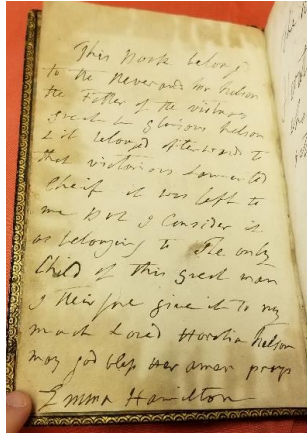 This Book belong
to the Reverand Mr Nelson
the Father of the virtuous
great & Glorious Nelson
& it belonged afterwards to
that victorious lamented
Cheif it was left to
me but I Consider it
as belonging to the only
Child of this great man
I theirfore give it to my
much loved Horatia Nelson
may god bless Her amen prays
Emma Hamilton